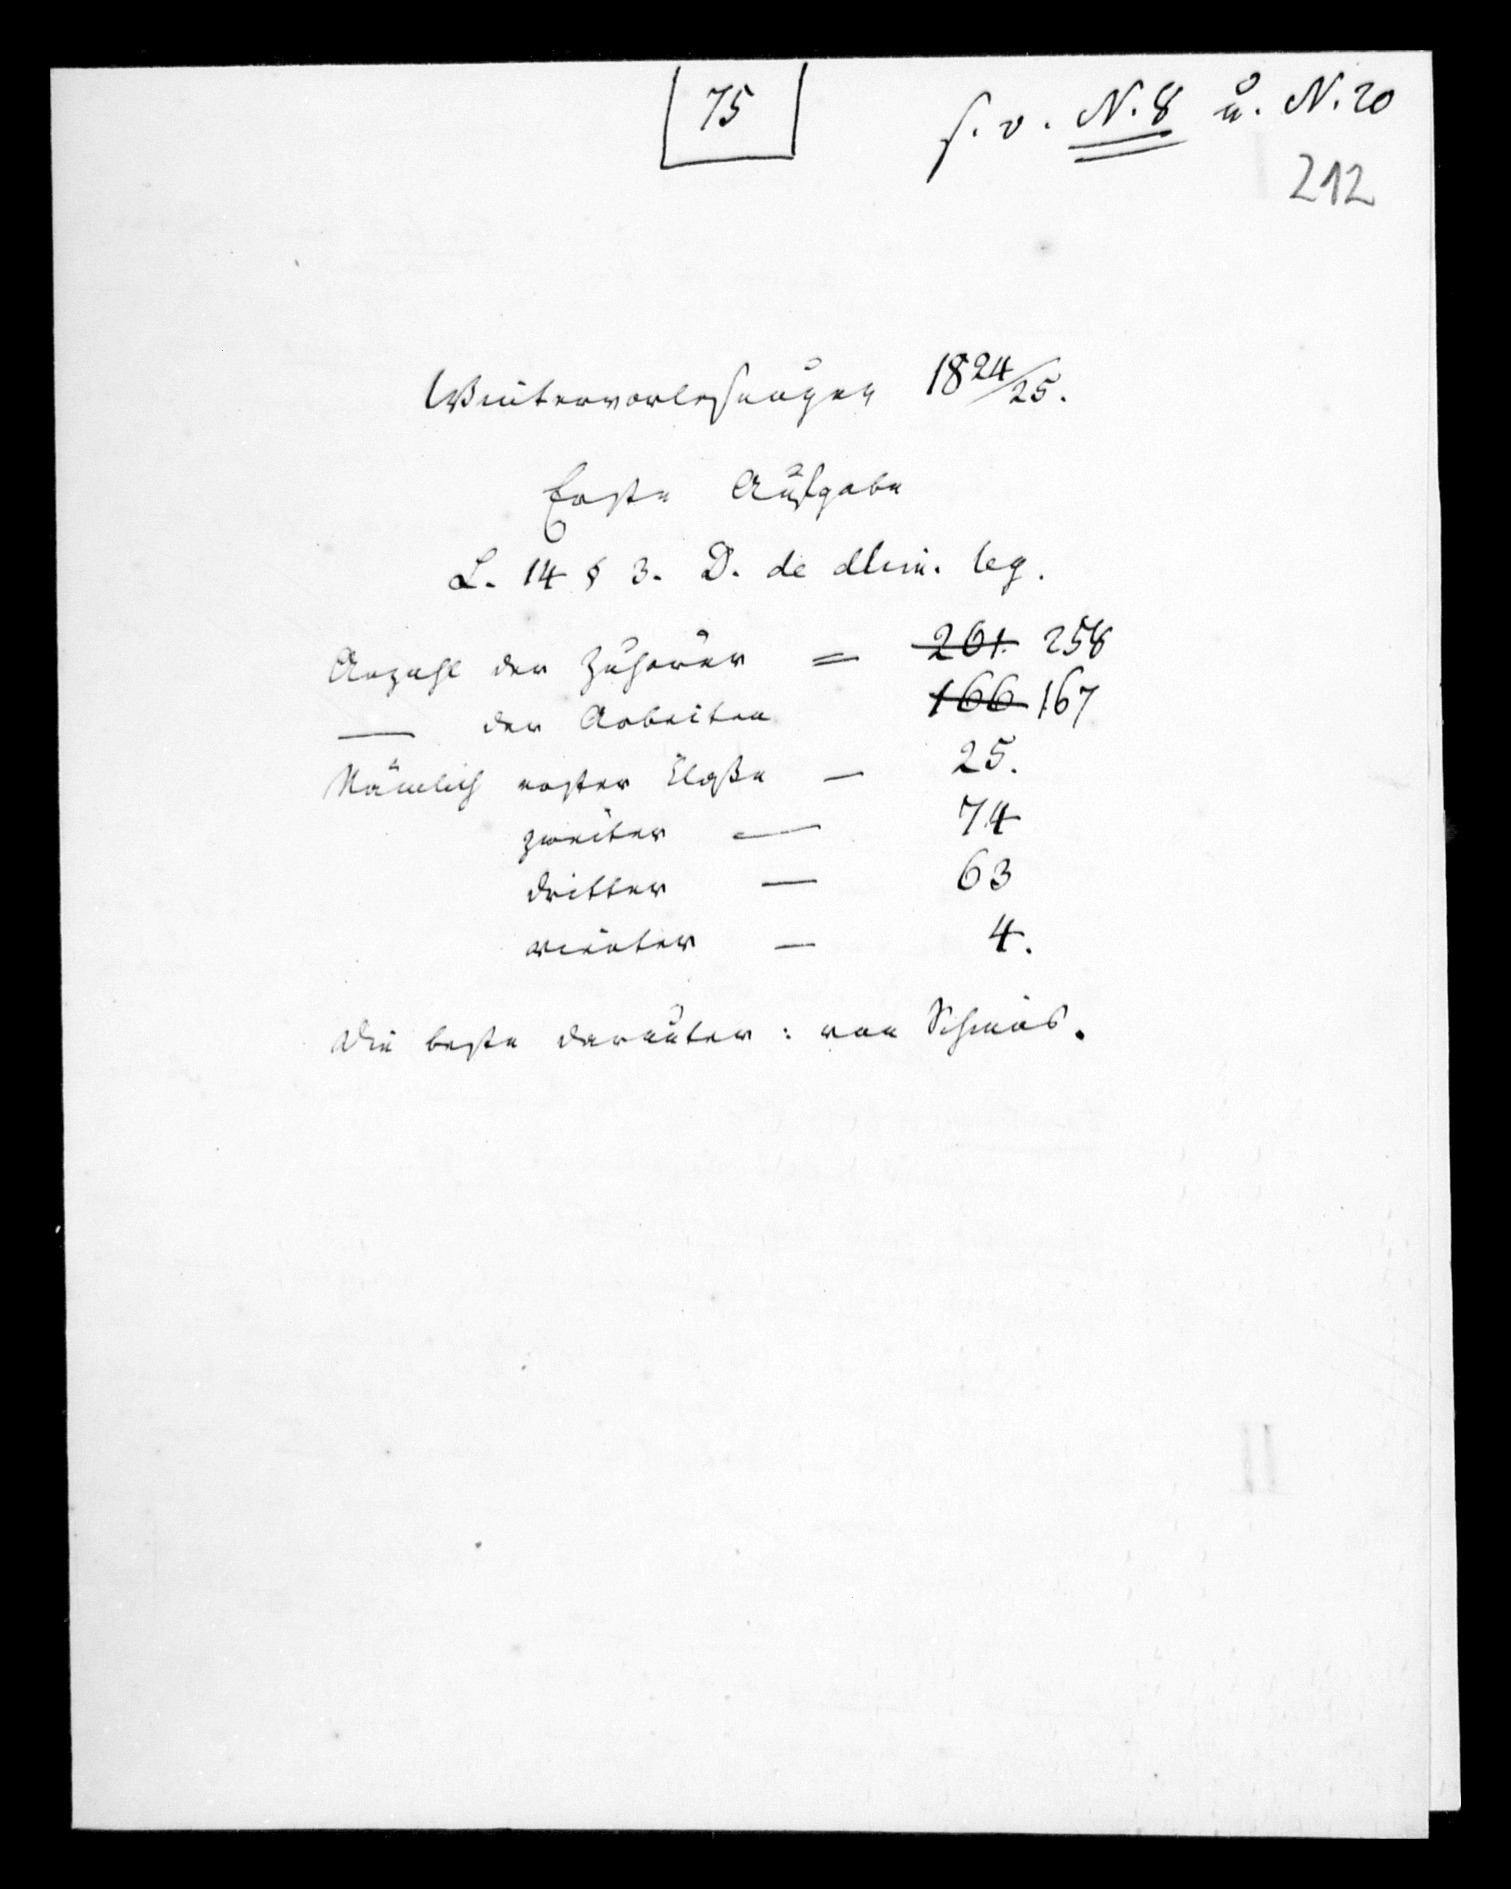 75
s. o. N. 8 u. N. 20
212
Wintervorlesungen 1824/25.
Erste Aufgabe
L. 14 § 3. D. de alim. leg.
Anzahl der Zuhörer = 261. 258
— der Arbeiten 166 167
Nämlich erster Classe — 25.
zweiter — 74
dritter — 63
vierter — 4.
Die beste darunter: von